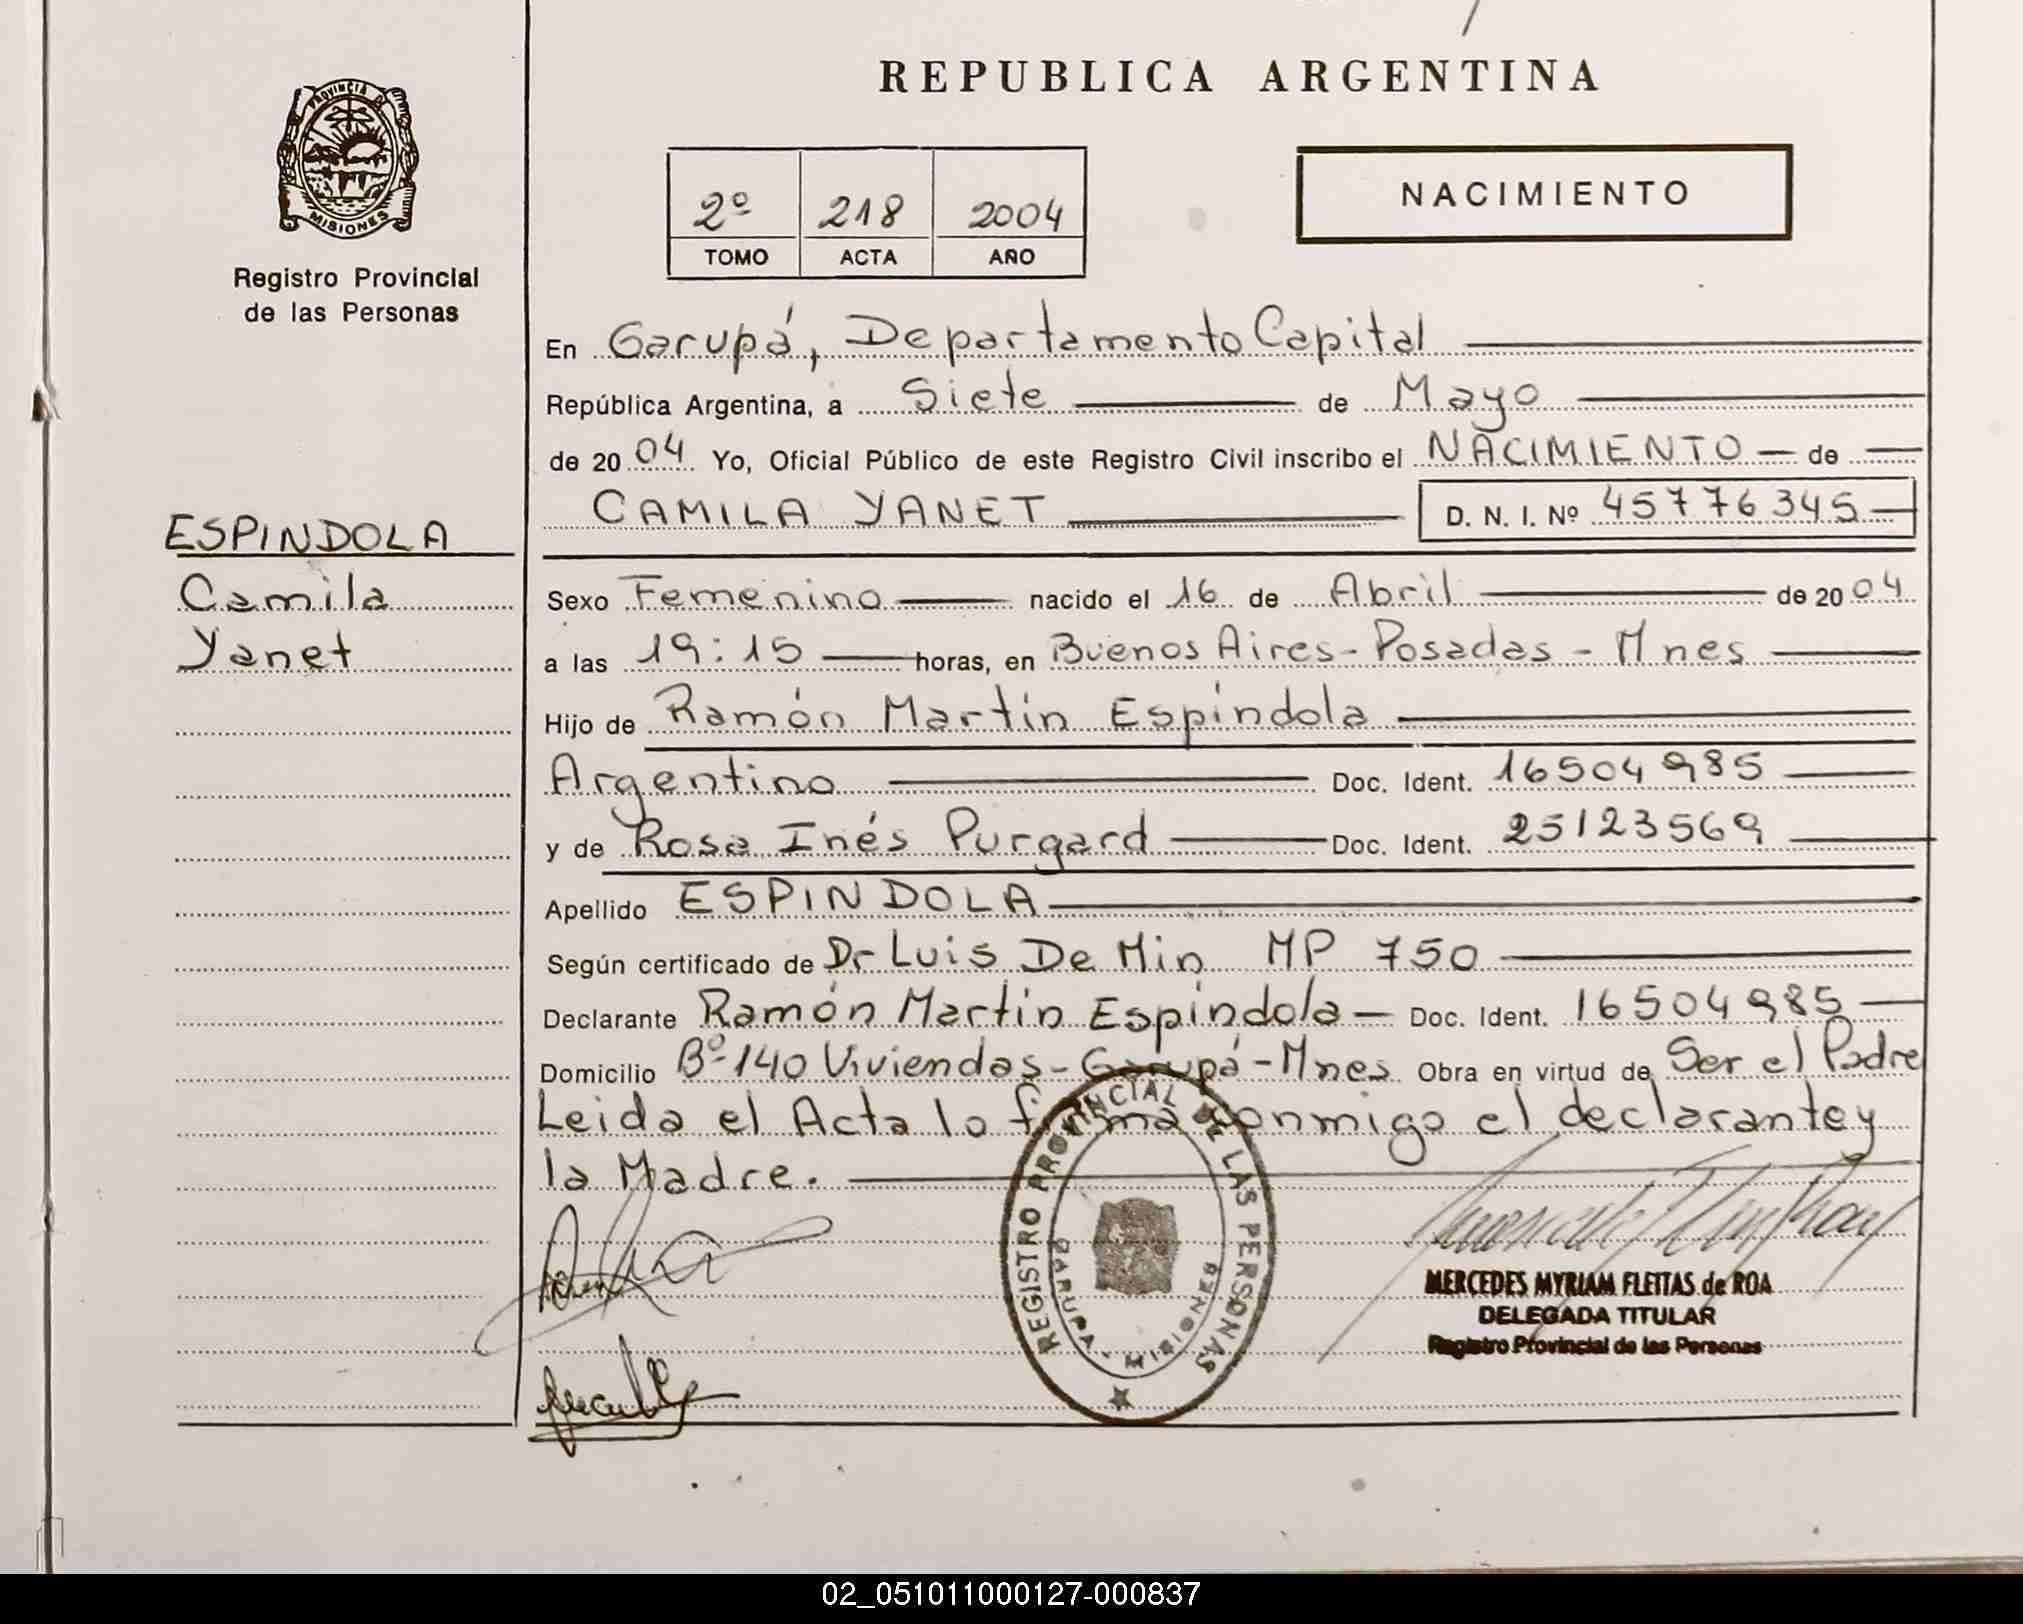 REPUBLICA ARGENTINA
PROVINCIA DE
MISIONES
Registro Provincial
de las Personas
2º 218 2004
TOMO ACTA AÑO
NACIMIENTO
En Garupá, Departamento Capital
República Argentina, a Siete de Mayo
de 2004 Yo, Oficial Público de este Registro Civil inscribo el NACIMIENTO de
CAMILA YANET D. N. I. Nº 45776345
ESPINDOLA
Camila
Yanet
Sexo Femenino nacido el 16 de Abril de 2004
a las 19:15 horas, en Buenos Aires - Posadas - Mnes
Hijo de Ramón Martín Espíndola
Argentino Doc. Ident. 16504985
y de Rosa Inés Purgard Doc. Ident. 25123569
Apellido ESPINDOLA
Según certificado de Dr Luis De Min MP 750
Declarante Ramón Martin Espíndola Doc. Ident. 16504985
Domicilio Bº 140 Viviendas - Garupá - Mnes Obra en virtud de Ser el Padre
Leida el Acta lo firma conmigo el declarante y
la Madre.
REGISTRO PROVINCIAL DE LAS PERSONAS
GARUPA - MISIONES
MERCEDES MYRIAM FLEITAS de ROA
DELEGADA TITULAR
Registro Provincial de las Personas
02_051011000127-000837